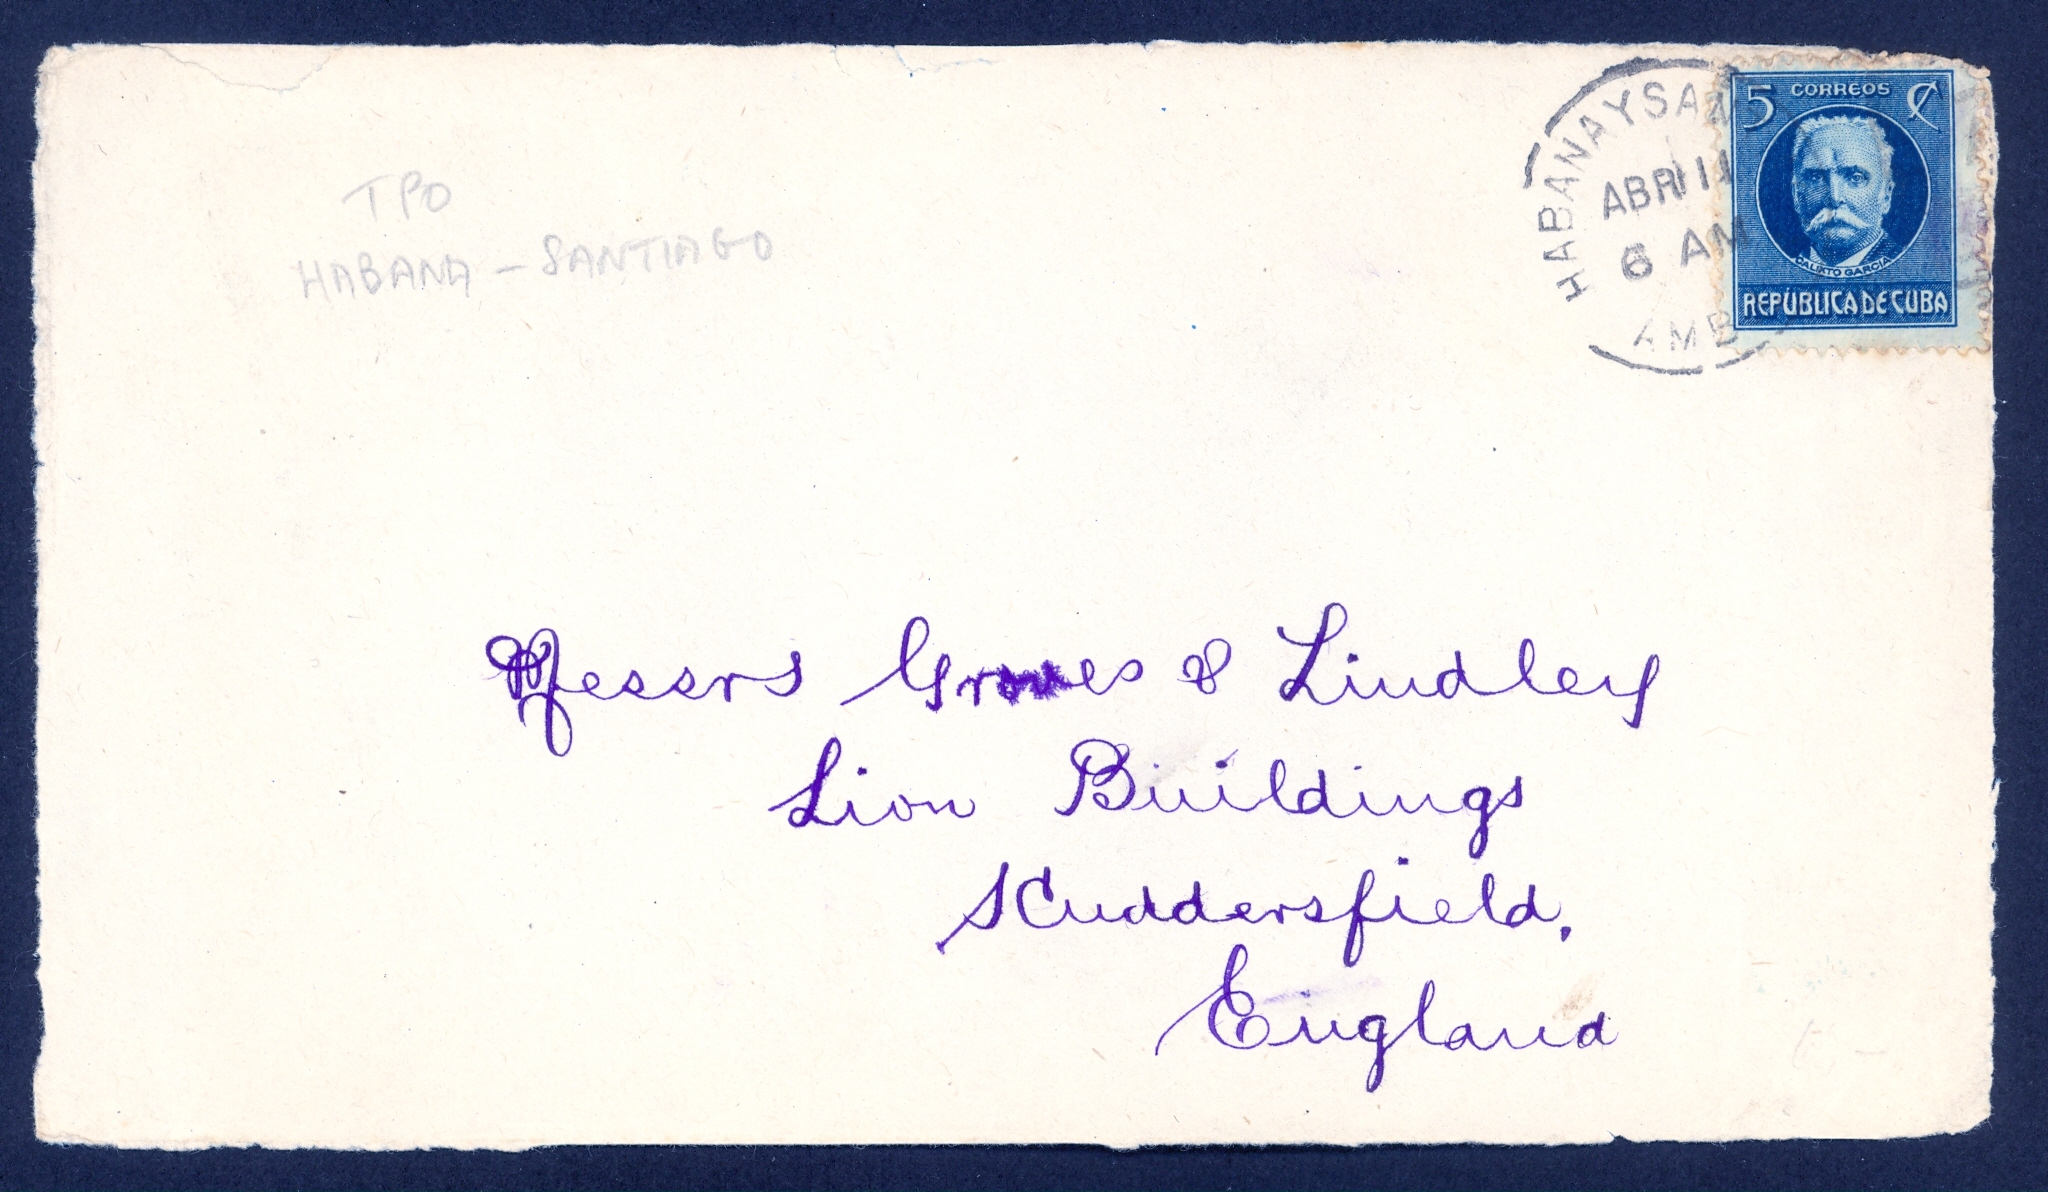 TPO
HABANA - SANTIAGO
HABANA Y SA
ABR 11
6 AM
AMB
5 CORREOS ₡
CALIXTO GARCIA
REPÚBLICA DE CUBA
Messrs Groves & Lindley
Lion Buildings
Huddersfield,
England